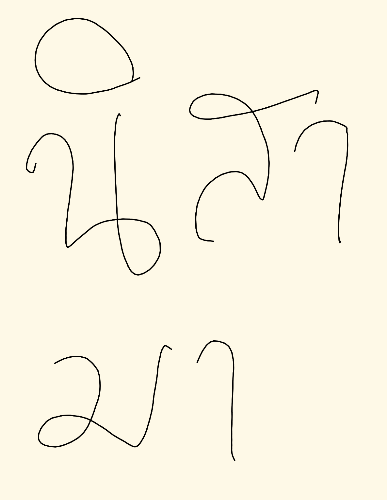 นิสา
มา